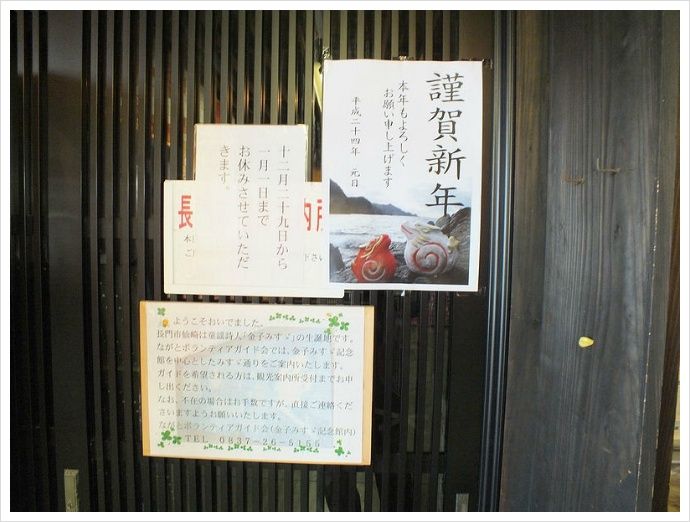 謹賀新年
本年もよろしく
お願い申し上げます
平成二十四年 元日
十二月二十九日から
一月一日まで
お休みさせていただ
きます。
長
内所
本
ご
ださい
ようこそおいでました。
長門市仙崎は童謡詩人「金子みすゞ」の生誕地です。
ながとボランティアガイド会では、金子みすゞ記念
館を中心としたみすゞ通りをご案内いたします。
ガイドを希望される方は、観光案内所受付までお申
し出ください。
なお、不在の場合はお手数ですが、直接ご連絡くだ
さいますようお願いいたします。
ながとボランティアガイド会(金子みすゞ記念館内)
TEL 0837-26-5155